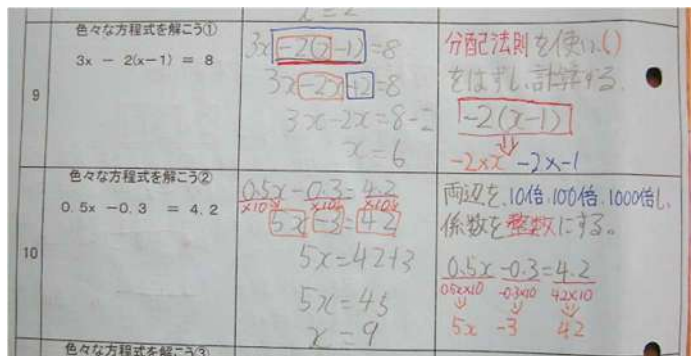 色々な方程式を解こう①
3x － 2(x－1) ＝ 8
9
3x -2(x-1) =8
3x -2x +2 =8
3x-2x=8-2
x=6
分配法則を使い、( )
をはずし、計算する。
-2(x-1)
-2×x -2×-1
色々な方程式を解こう②
0.5x －0.3 ＝ 4.2
10
0.5x - 0.3 = 4.2
×10 ×10 ×10
5x -3 = 42
5x=42+3
5x=45
x=9
両辺を、10倍、100倍、1000倍し、
係数を整数にする。
0.5x -0.3 = 4.2
0.5x×10 -0.3×10 4.2×10
5x -3 42
色々な方程式を解こう③